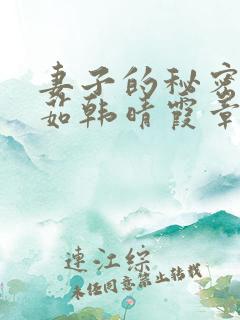 妻子的秘密
茹韩晴霞章
連江綜
未经同意禁止转载